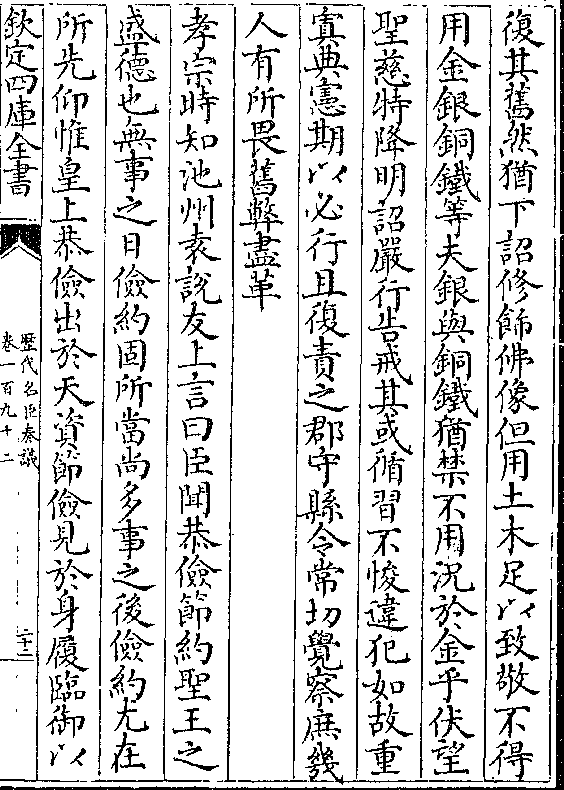 復其舊然猶下詔修飾佛像但用土木足以致敬不得
用金銀銅鐵等夫銀與銅鐵猶禁不用況於金乎伏望
聖慈特降明詔嚴行告戒其或循習不悛違犯如故重
寘典憲期以必行且復責之郡守縣令常切覺察庶幾
人有所畏舊弊盡革
孝宗時知池州袁說友上言曰臣聞恭儉節約聖王之
盛德也無事之日儉約固所當尚多事之後儉約尤在
所先仰惟皇上恭儉出於天資節儉見於身履臨御以
欽定四庫全書
歷代名臣奏議
卷一百九十二
二十二